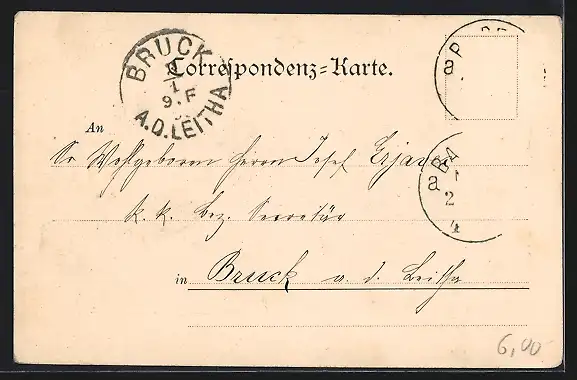 BRUCK
A.D.LEITHA
9.F
Correspondenz-Karte.
An
Sr Wohlgeboren Herrn Josef Erjavec
k. k. Bez. Secretär
in Bruck a. d. Leitha
a
BA
a
1
2
4
6,00